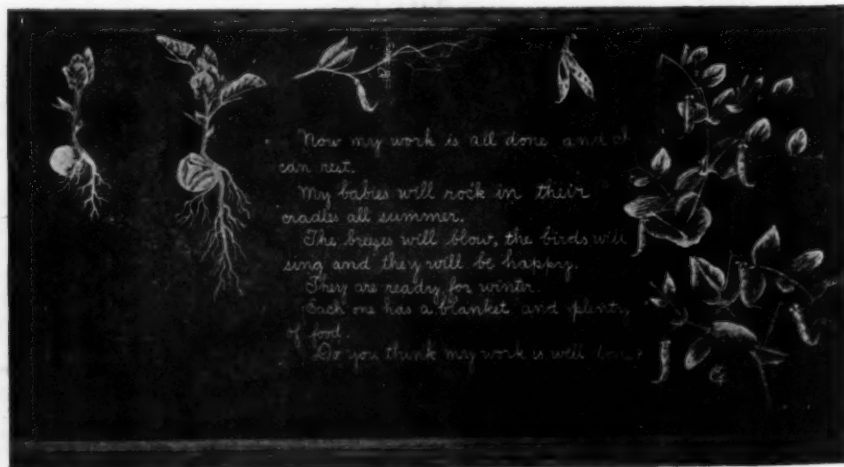 Now my work is all done and I
can rest.
My babies will rock in their
cradles all summer.
The breezes will blow, the birds will
sing and they will be happy.
They are ready for winter.
Each one has a blanket and plenty
of food.
Do you think my work is well done?